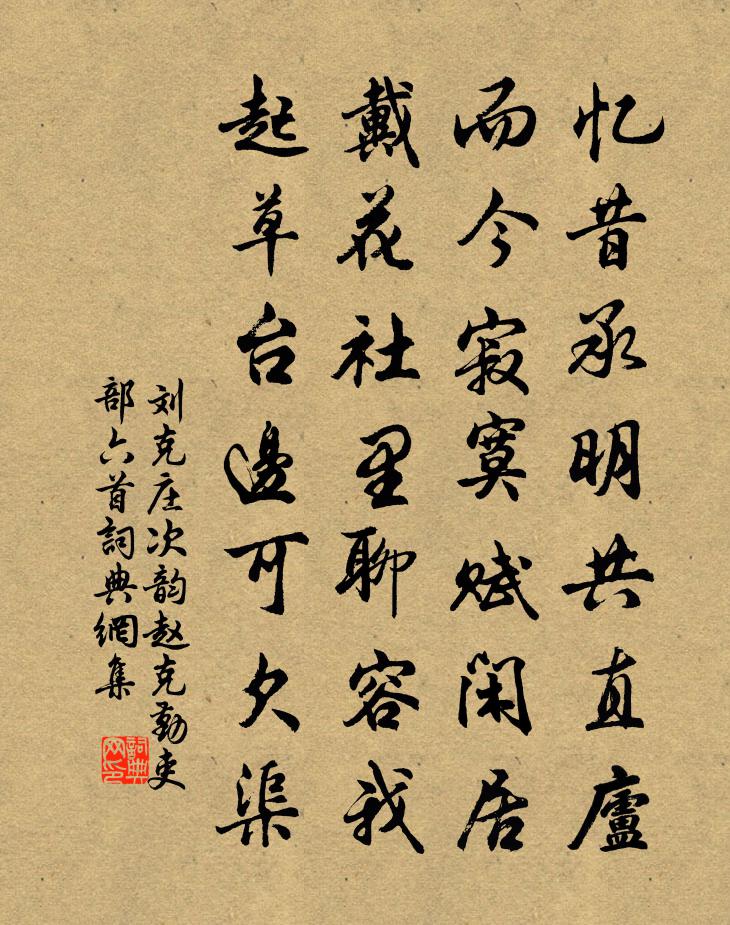 忆昔承明共直廬
而今寂寞赋闲居
戴花社里聊容我
起草台邊可欠渠
刘克庄次韵赵克勤吏
部六首詞典網集
詞典
网印